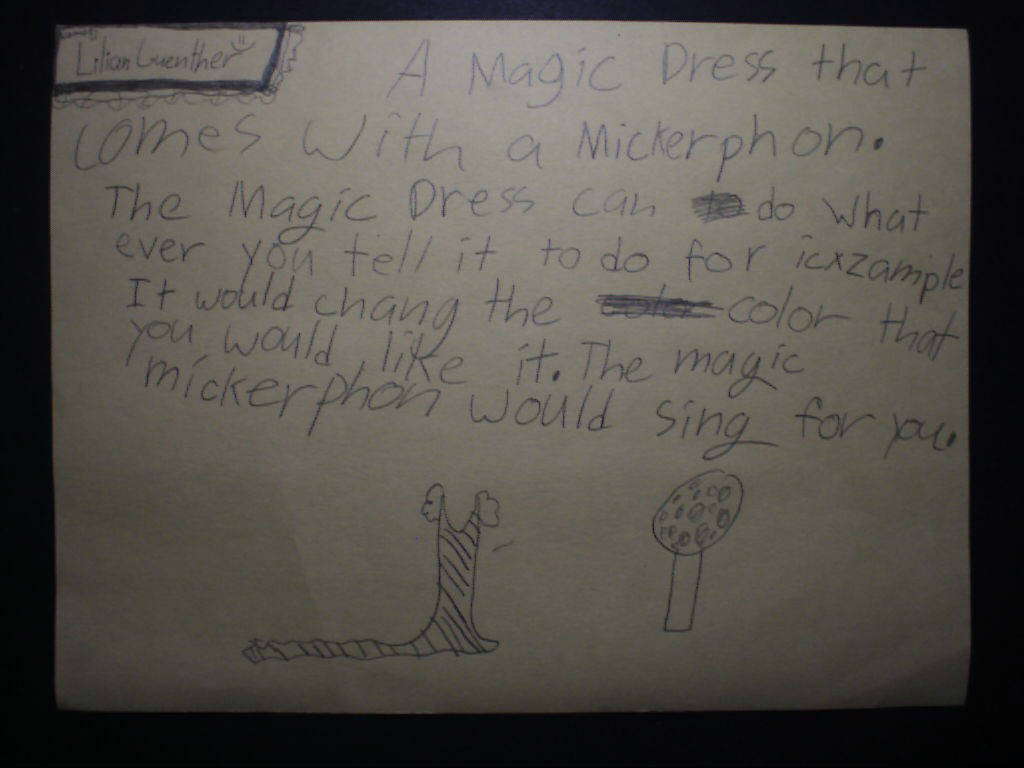 Lilian Guenther
A Magic Dress that
comes With a Mickerphon.
The Magic Dress can do what
ever you tell it to do for icxzample
It would chang the color that
you would like it. The magic
mickerphon would sing for you.